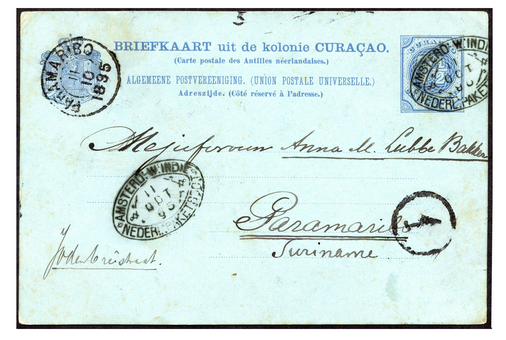 BRIEFKAART uit de kolonie CURAÇAO.
(Carte postale des Antilles néerlandaises.)
ALGEMEENE POSTVEREENIGING. (UNION POSTALE UNIVERSELLE.)
Adreszijde. (Côté réservé à l'adresse.)
PARAMARIBO
11
10
1895
AMSTERD-W:INDIË
OCT
NEDERL:PAKETB
Mejufvrouw Anna M. Lubbe Bakker
AMSTERD-W:INDIË
11
OCT
95
NEDERL:PAKETB
1
Paramaribo
Suriname